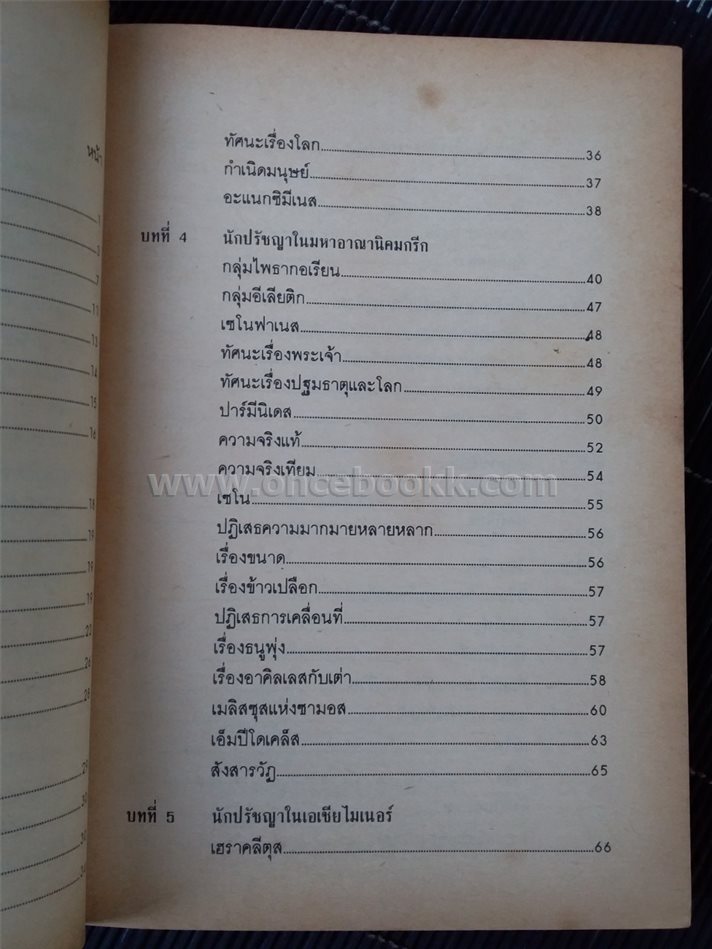 หน้า
1
3
7
11
13
14
15
16
18
19
19
19
22
26
28
29
30
ทัศนะเรื่องโลก 36
กำเนิดมนุษย์ 37
อะแนกซิมีเนส 38
บทที่ 4 นักปรัชญาในมหาอาณานิคมกรีก
กลุ่มไพธากอเรียน 40
กลุ่มอีเลียติก 47
เซโนฟาเนส 48
ทัศนะเรื่องพระเจ้า 48
ทัศนะเรื่องปฐมธาตุและโลก 49
ปาร์มีนิเดส 50
ความจริงแท้ 52
ความจริงเทียม 54
www.oncebookk.com
เซโน 55
ปฏิเสธความมากมายหลายหลาก 56
เรื่องขนาด 56
เรื่องข้าวเปลือก 57
ปฏิเสธการเคลื่อนที่ 57
เรื่องธนูพุ่ง 57
เรื่องอาคิลเลสกับเต่า 58
เมลิสซุสแห่งซามอส 60
เอ็มปีโดเคล็ส 63
สังสารวัฏ 65
บทที่ 5 นักปรัชญาในเอเชียไมเนอร์
เฮราคลีตุส 66